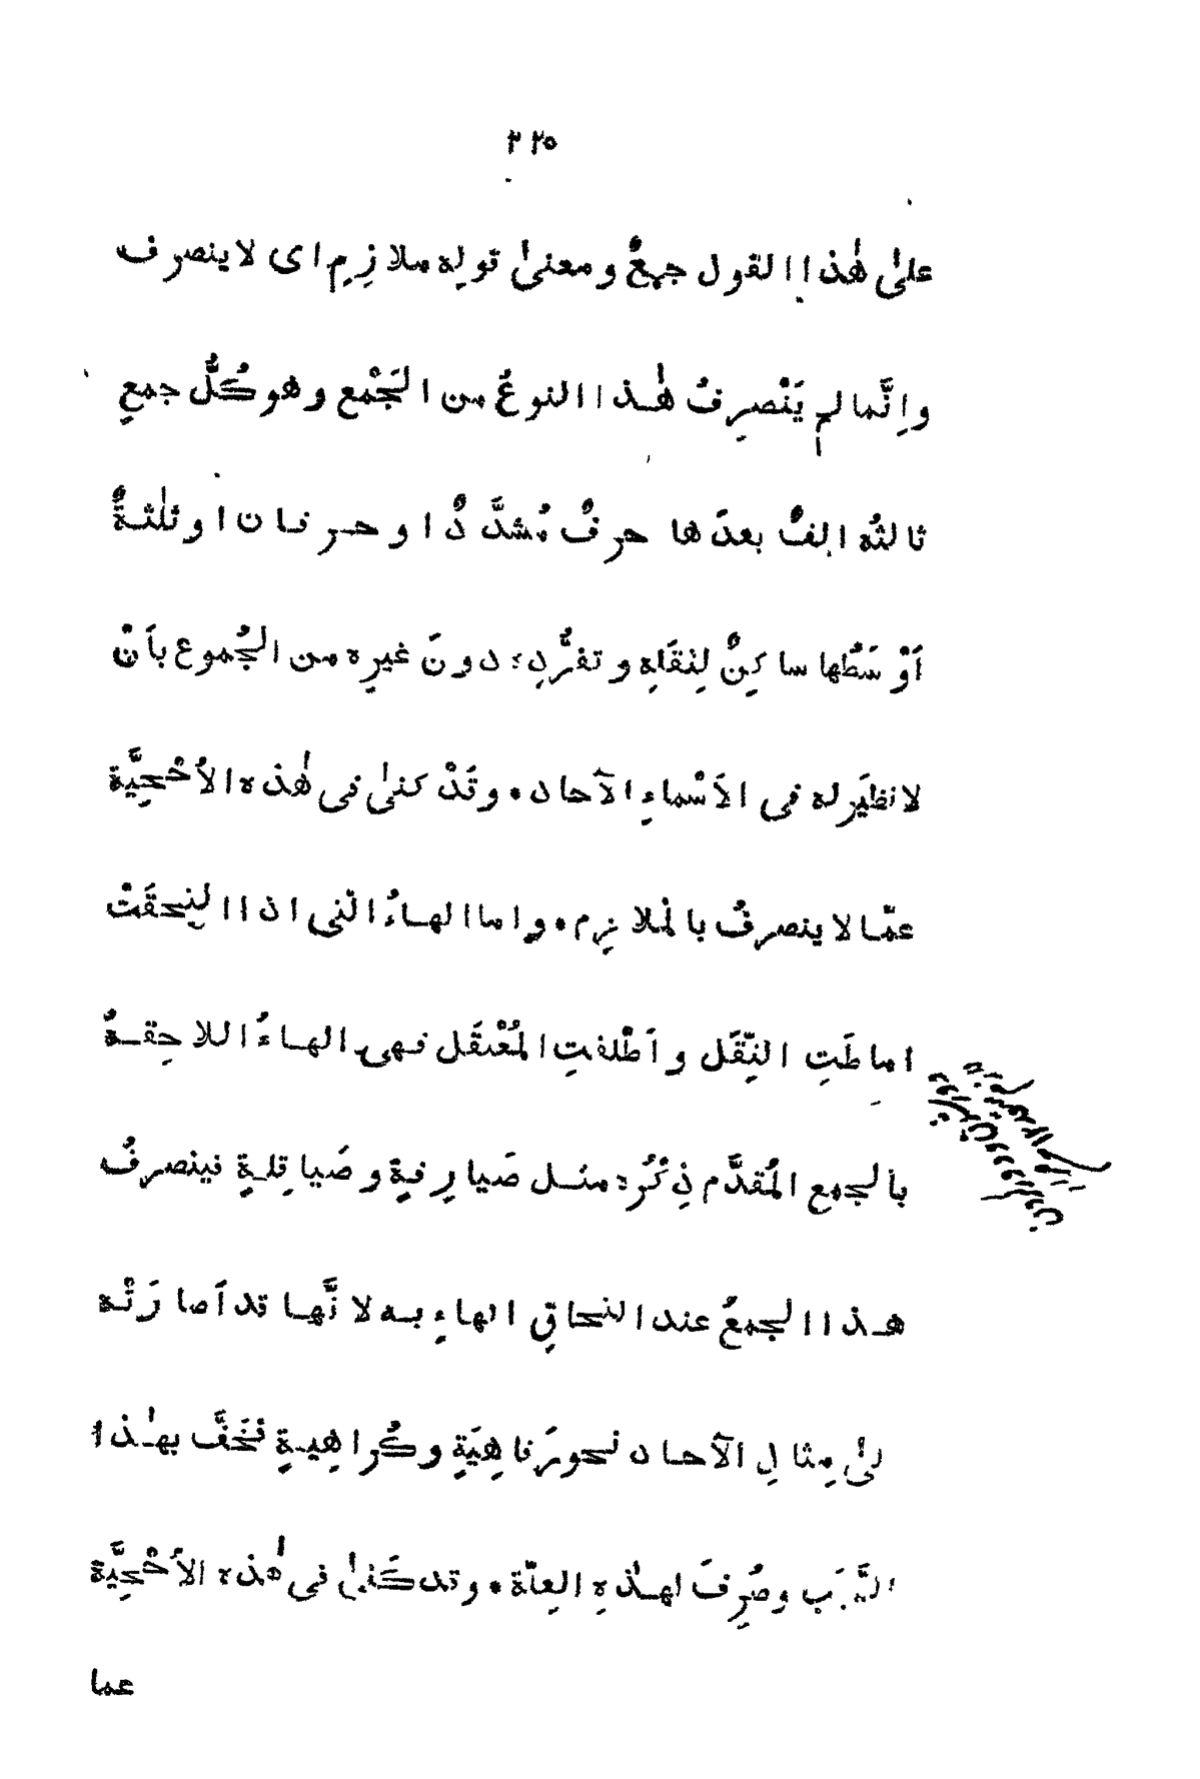 ٢٢٥
علىٰ هٰذا القول جمعٌ ومعنىٰ قوله ملازِمِ اى لا ينصرف
وانَّما لم يَنْصرِفُ هٰذا النوعُ من الجَمْع وهو كُلُّ جمعٍ
ثالثهُ الفٌ بعدَها حرفٌ مُشدَّدٌ او حرفان او ثلٰثةٌ
اَوْسَطُها ساكِنٌ لِثقَلِهِ وتفرُّدِهِ دونَ غيرِه من الجُموع بأنْ
لا نظيَرله فى الاَسْماءِ الآحاد • وقَدْ كنىٰ فى هٰذه الاُحْجِيَّة
عمّا لا ينصرفُ بالمْلازِم • واما الهاءُ الّتى اذا الِتحقَتْ
اماطَتِ الثِّقَل واَطْلقتِ المُعْتقَل فهى الهاءُ اللاحِقةُ
بالجمعِ المُقدَّم ذِكْرُه مثل صَيارِفةٍ وصَياقِلةٍ فينصرفُ
هذا الجمعُ عند التحاقِ الهاءِ به لانَّها قد اَصارَتْه
الىٰ مِثالِ الآحاد نحورَفاهِيَةٍ وكُراهِيةٍ فخَفَّ بهٰذا
السَّبَبِ وصُرِفَ لهٰذهِ العِلّة • وقد كَنىٰ فى هٰذه الاُحْجِيَّة
عما